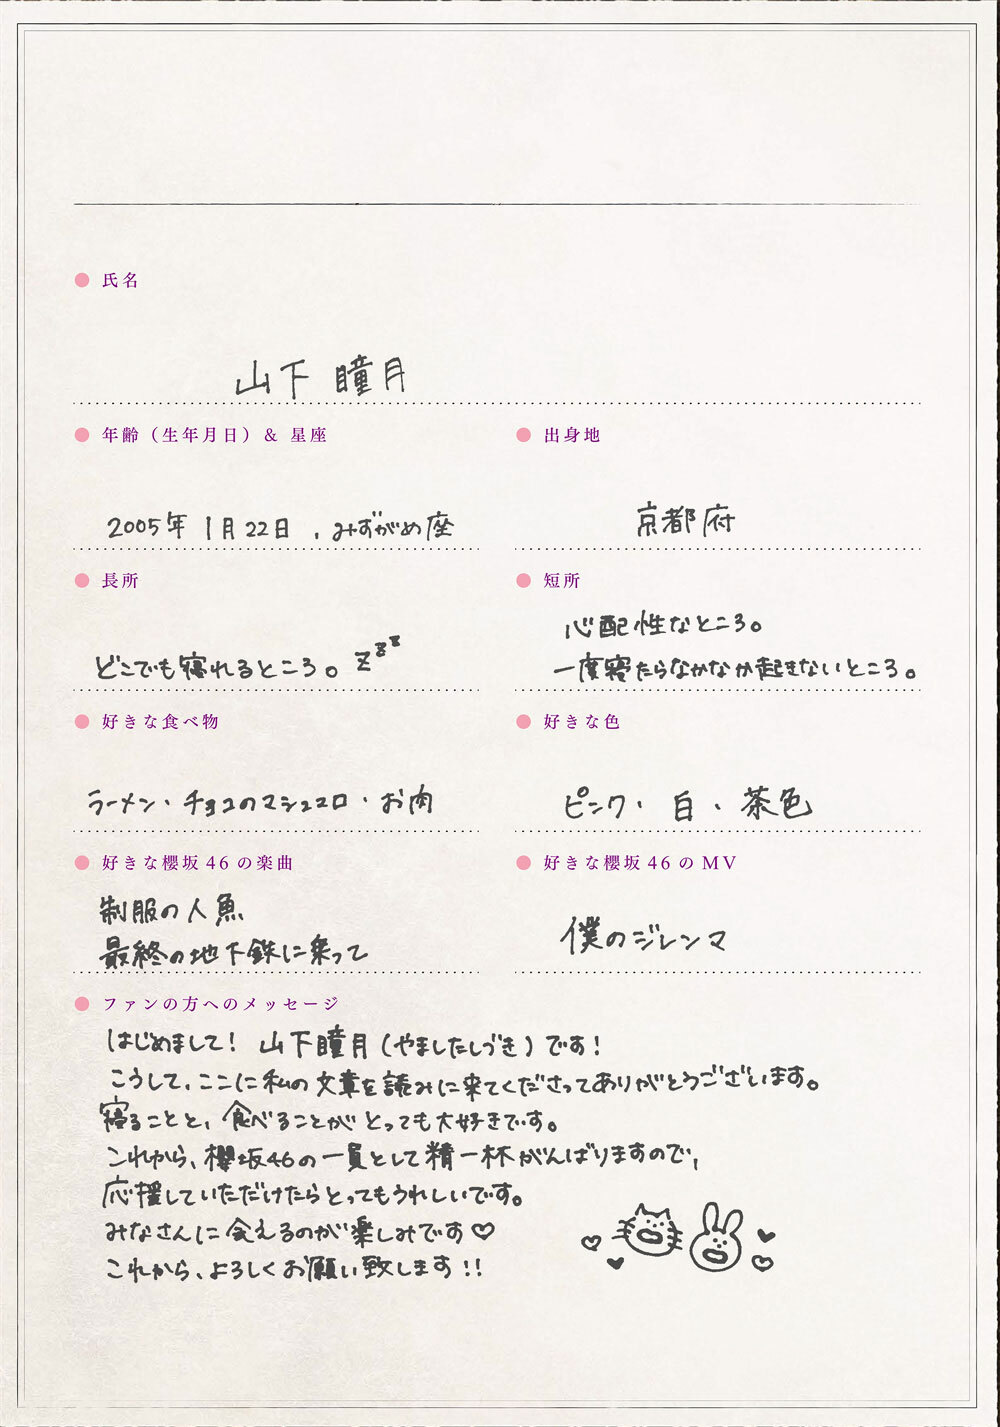 氏名
山下 瞳月
年齢（生年月日）& 星座
2005年 1月22日 , みずがめ座
出身地
京都府
長所
どこでも寝れるところ。zzz
短所
心配性なところ。
一度寝たらなかなか起きないところ。
好きな食べ物
ラーメン・チョコのマシュマロ・お肉
好きな色
ピンク・白・茶色
好きな櫻坂46の楽曲
制服の人魚
最終の地下鉄に乗って
好きな櫻坂46のMV
僕のジレンマ
ファンの方へのメッセージ
はじめまして! 山下瞳月(やましたしづき)です!
こうして、ここに私の文章を読みに来てくださってありがとうございます。
寝ることと、食べることがとっても大好きです。
これから、櫻坂46の一員として精一杯がんばりますので、
応援していただけたらとってもうれしいです。
みなさんに会えるのが楽しみです♡
これから、よろしくお願い致します!!